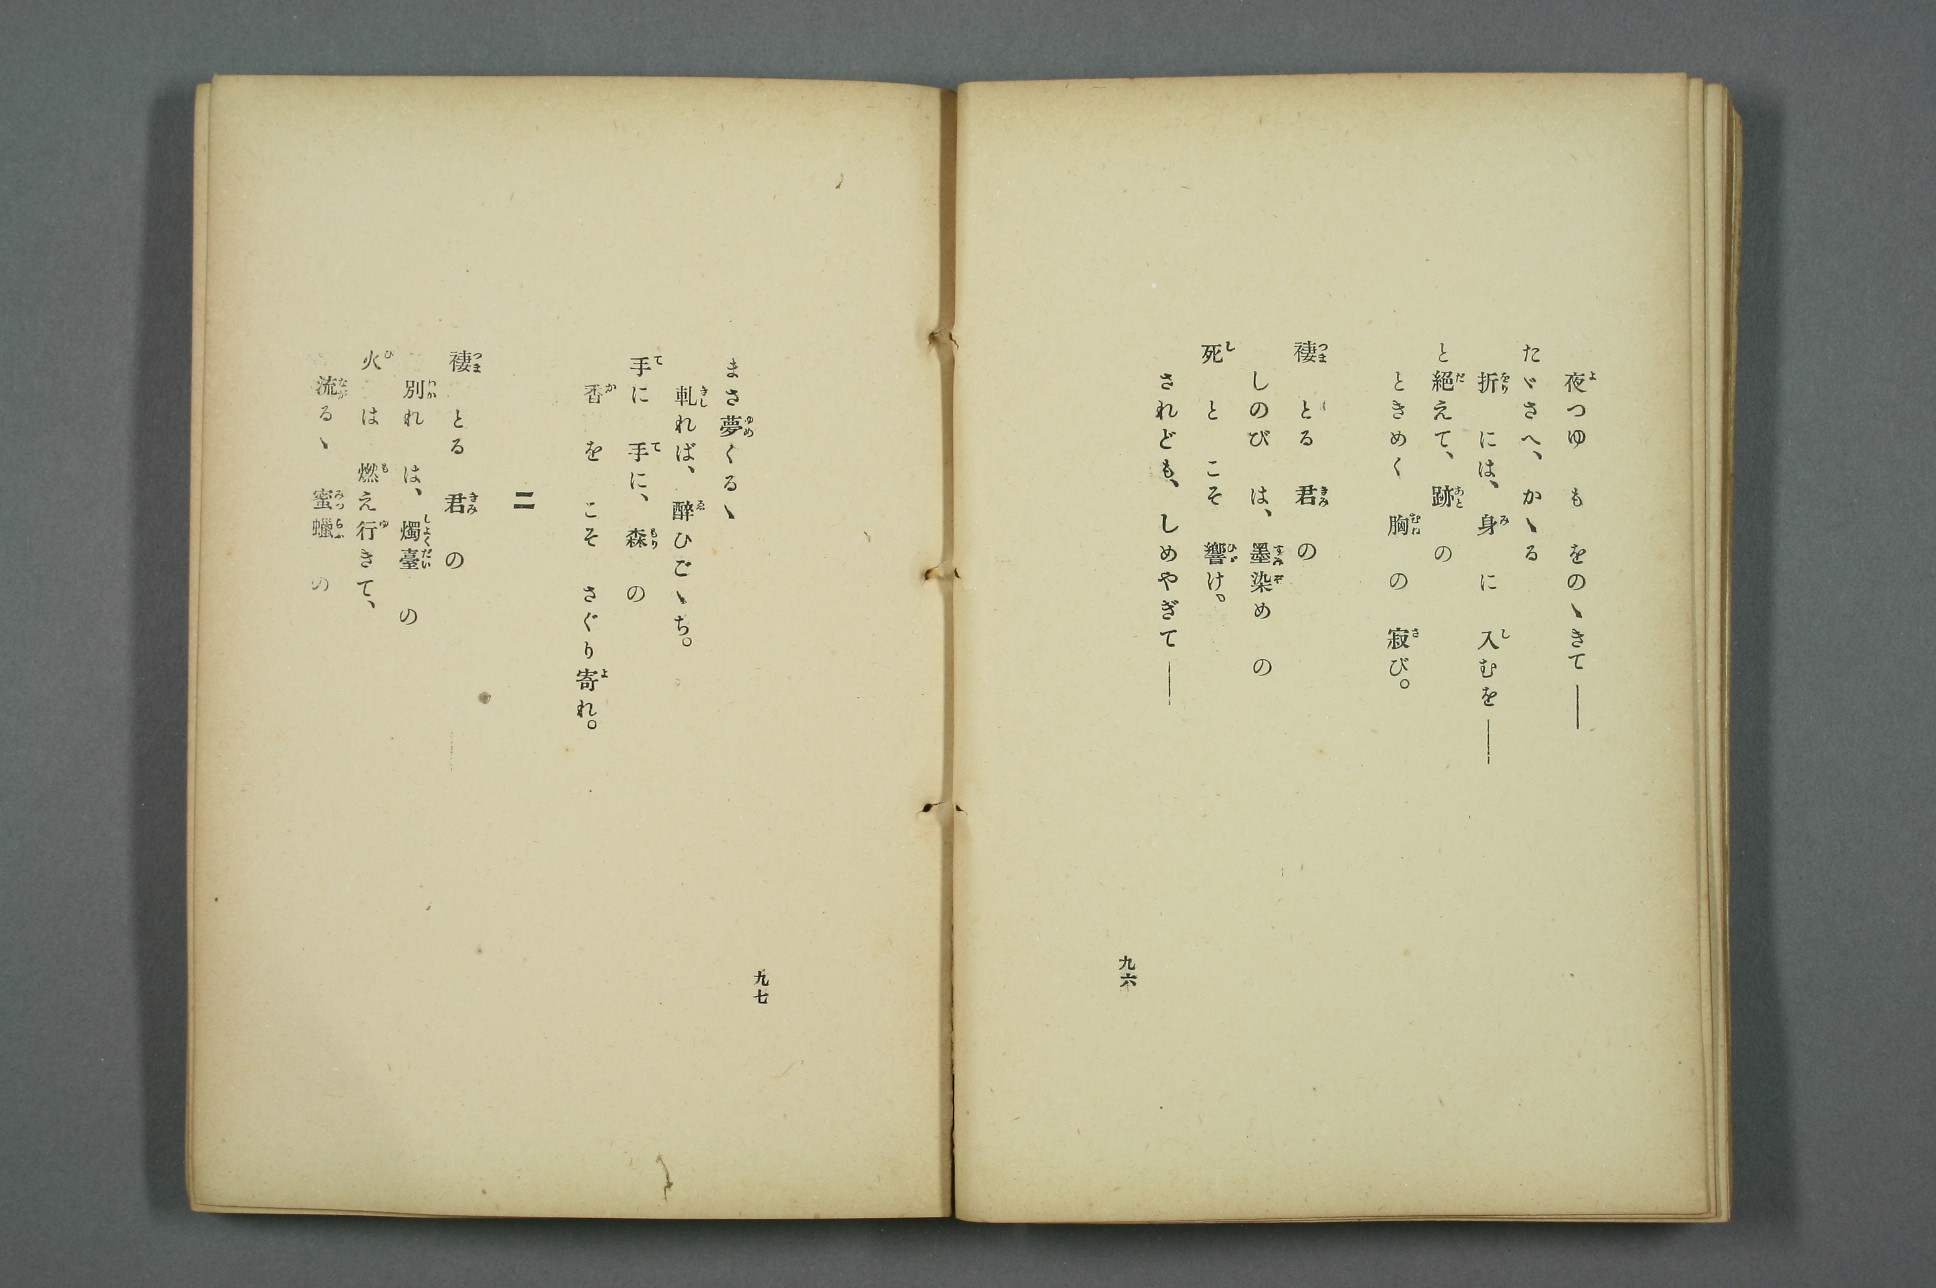 夜つゆ も をのゝきて――
たゞさへ、かゝる
折 には、身 に 入むを――
と絶えて、跡 の
ときめく 胸 の 寂び。
褄 とる 君 の
しのび は、墨染め の
死 と こそ 響け。
されども、しめやぎて――
九六
まさ夢くるゝ
軋れば、醉ひごゝち。
手に 手に、森 の
香 を こそ さぐり寄れ。
二
褄 とる 君 の
別れ は、燭臺 の
火 は 燃え行きて、
流るゝ 蜜蠟 の
九七